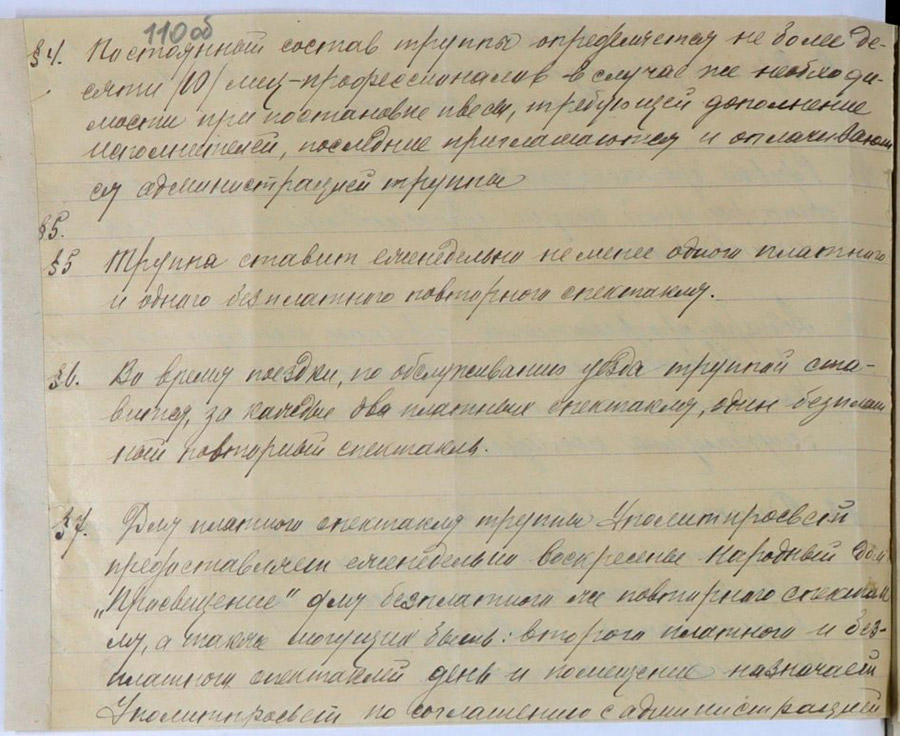 110 об
§ 4. Постоянный состав труппы определяется не более де-
сяти /10/ лиц-профессионалов в случае же необходи-
мости при постановке пьесы, требующей дополнение
исполнителей, последние приглашаются и оплачивают
ся администрацией труппы
§5.
§5 Труппа ставит еженедельно не менее одного платного
и одного безплатного повторного спектакля.
§6. Во время поездки, по обслуживанию уезда труппой ста-
вится, за каждые два платных спектакля, один безплат
ный повторный спектакль.
§7. Для платного спектакля труппы Уполитпросвет
предоставляет еженедельно воскресенье Народный дом
„Просвещение" для безплатного же повторного спектак
ля, а также могущих быть: второго платного и без-
платного спектаклей день и помещение назначает
Уполитпросвет по соглашению с администрацией